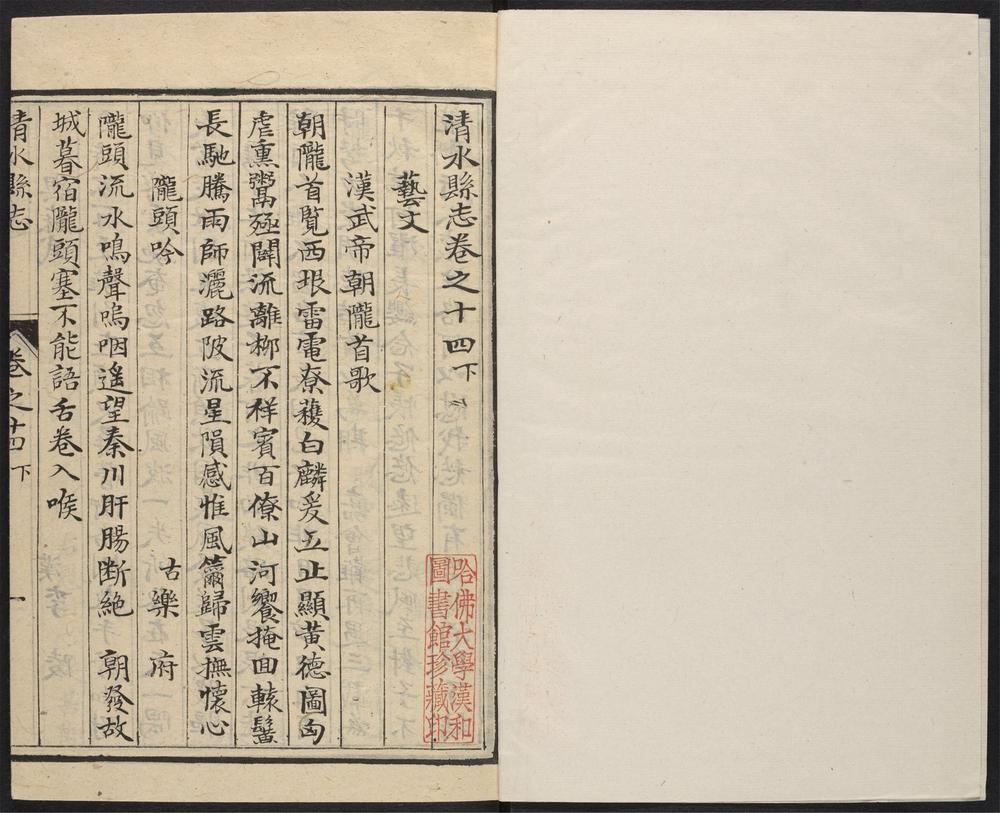 清水縣志卷之十四下
藝文
漢武帝朝隴首歌
朝隴首覧西垠雷電尞蕧白麟爰五止顯黃德圖匈
虐熏鬻殛闢流離抑不祥賓百僚山河饗掩回轅鬗
長馳騰雨師灑路陂流星隕感惟風籋歸雲撫懷心
隴頭吟 古樂府
隴頭流水鳴聲嗚咽遥望秦川肝腸断絶 朝發故
城暮宿隴頭寒不能語舌卷入喉
清水縣志 卷之十四下 一
哈佛大學漢和
圖書館珍藏印